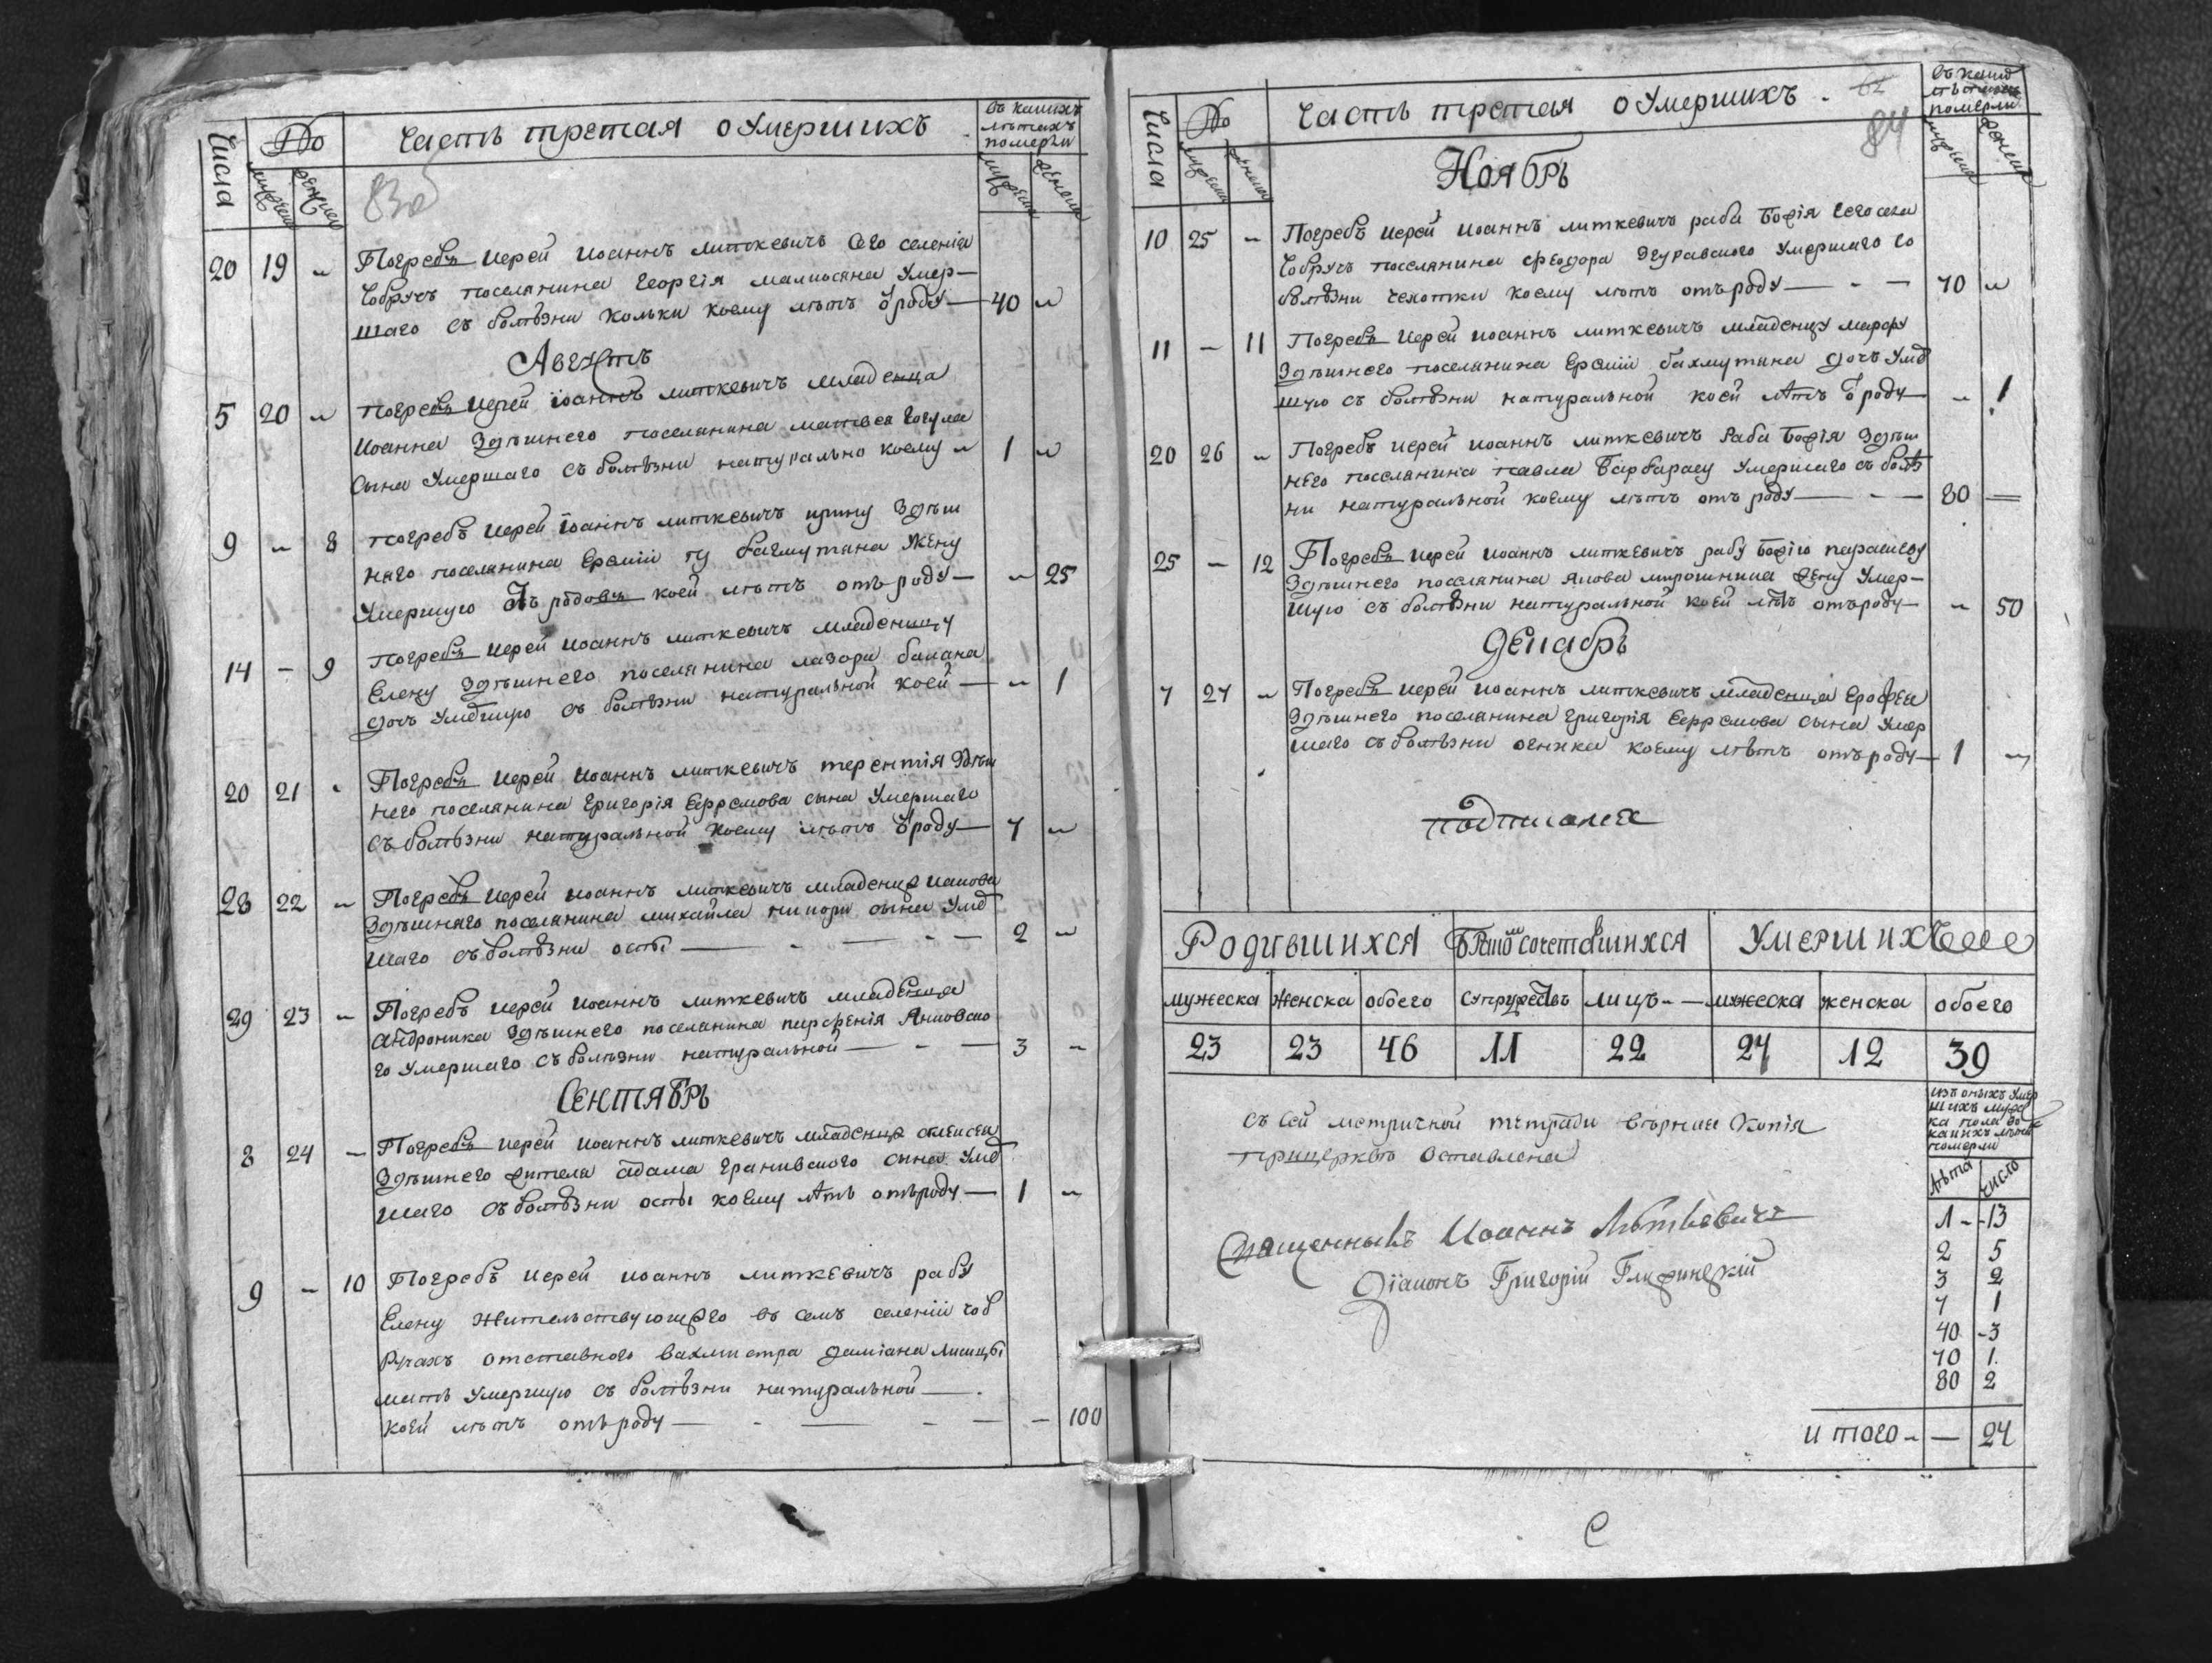 Числа
№
Часть третая о умершихъ
въ какихъ
лѣтахъ
померли
мужеска
женска
83об
20 19 Погребъ иерей иоаннъ литкевичъ сего селенія
Чобручъ поселянина георгія малиосяна умер–
шаго съ болѣзни кольки коему лѣтъ ѿроду— 40
Августъ
5 20 погребъ иерей іоаннъ литкевичъ младенца
иоанна здѣшнего поселянина матвея гогула
сына умершаго съ болѣзни натурально коему 1
9 – 8 погребъ иерей іоаннъ литкевичъ ирину здѣш
няго поселянина еремии бахмутяна жену
умершую ѿъ родовъ коей лѣтъ отъ роду— 25
14 – 9 погребъ иерей иоаннъ литкевичъ младеницу
елену здѣшнего поселянина лазоря бакана
дочь умѣршую съ болѣзни натуральной коей — 1
20 21 Погребъ иерей иоаннъ литкевичъ терентія здѣш
него поселянина григорія ефремова сына умершаго
съ болѣзни натуральной коему лѣтъ ѿроду— 7
28 22 Погребъ иерей иоаннъ литкевичъ младенца иакова
здѣшняго поселянина михайла сына умер
шаго съ болѣзни оспы — — — 2
29 23 Погребъ иерей иоаннъ литкевичъ младенца
андроника здѣшнего поселянина парфенія
го умершаго съ болѣзни натуральной — — — 3
Сентябрь
8 24 — Погребъ иерей иоаннъ литкевичъ младенца алексея
здѣшнего жителя адама гранивского сына умер
шаго съ болѣзни оспы коему лѣтъ отъроду — 1
9 – 10 Погребъ иерей иоаннъ литкевичъ рабу
елену жительствующего въ семъ селеніи чоб
ручахъ отставного вахмистра даміана лисицы
мать умершую съ болѣзни натуральной —
коей лѣтъ отъ роду — — — — 100
Числа
№
мужеска
женска
Часть третая о умершихъ
84
въ какихъ
лѣтахъ
померли
мужеска
женска
Ноябрь
10 25 Погребъ иерей иоаннъ литкевичъ раба божія сего села
Чобручъ поселянина феодора згуравского умершаго со
болѣзни чехотки коему лѣтъ отъ роду — – — 70
11 — 11 Погребъ иерей иоаннъ литкевичъ младенцу марфу
здѣшнего поселянина еремии бахмутяна дочь умер
шую съ болѣзни натуральной коей лѣтъ ѿроду — 1
20 26 Погребъ иерей иоаннъ литкевичъ раба божія здѣш
него поселянина павла барбарасу умершаго съ болѣз
ни натуральной коему лѣтъ отъ роду — — — 80
25 — 12 Погребъ иерей иоаннъ литкевичъ рабу божію параскеву
здѣшнего поселянина якова мирошника жену умер–
шую съ болѣзни натуральной коей лѣтъ отъроду— 50
Декабрь
7 27 Погребъ иерей иоаннъ литкевичъ младенца ерофея
здѣшнего поселянина григорія ефремова сына умер
шаго съ болѣзни огника коему лѣтъ отъ роду — 1
подписался
Родившихся Бракомъ сочетавшихся Умершихъ
мужеска женска обоего супружествъ лицъ мужеска женска обоего
23 23 46 11 22 27 12 39
съ сей метричной тетради вѣрная копія
прицерквѣ оставлена
Священникъ Иоаннъ Литкевичъ
Діаконъ Григорій
изъ оныхъ умер
шихъ муже
ска пола въ
какихъ лѣтахъ
померли
лѣта число
1 – 13
2 5
3 2
7 1
40 – 3
70 1
80 2
итого — 27